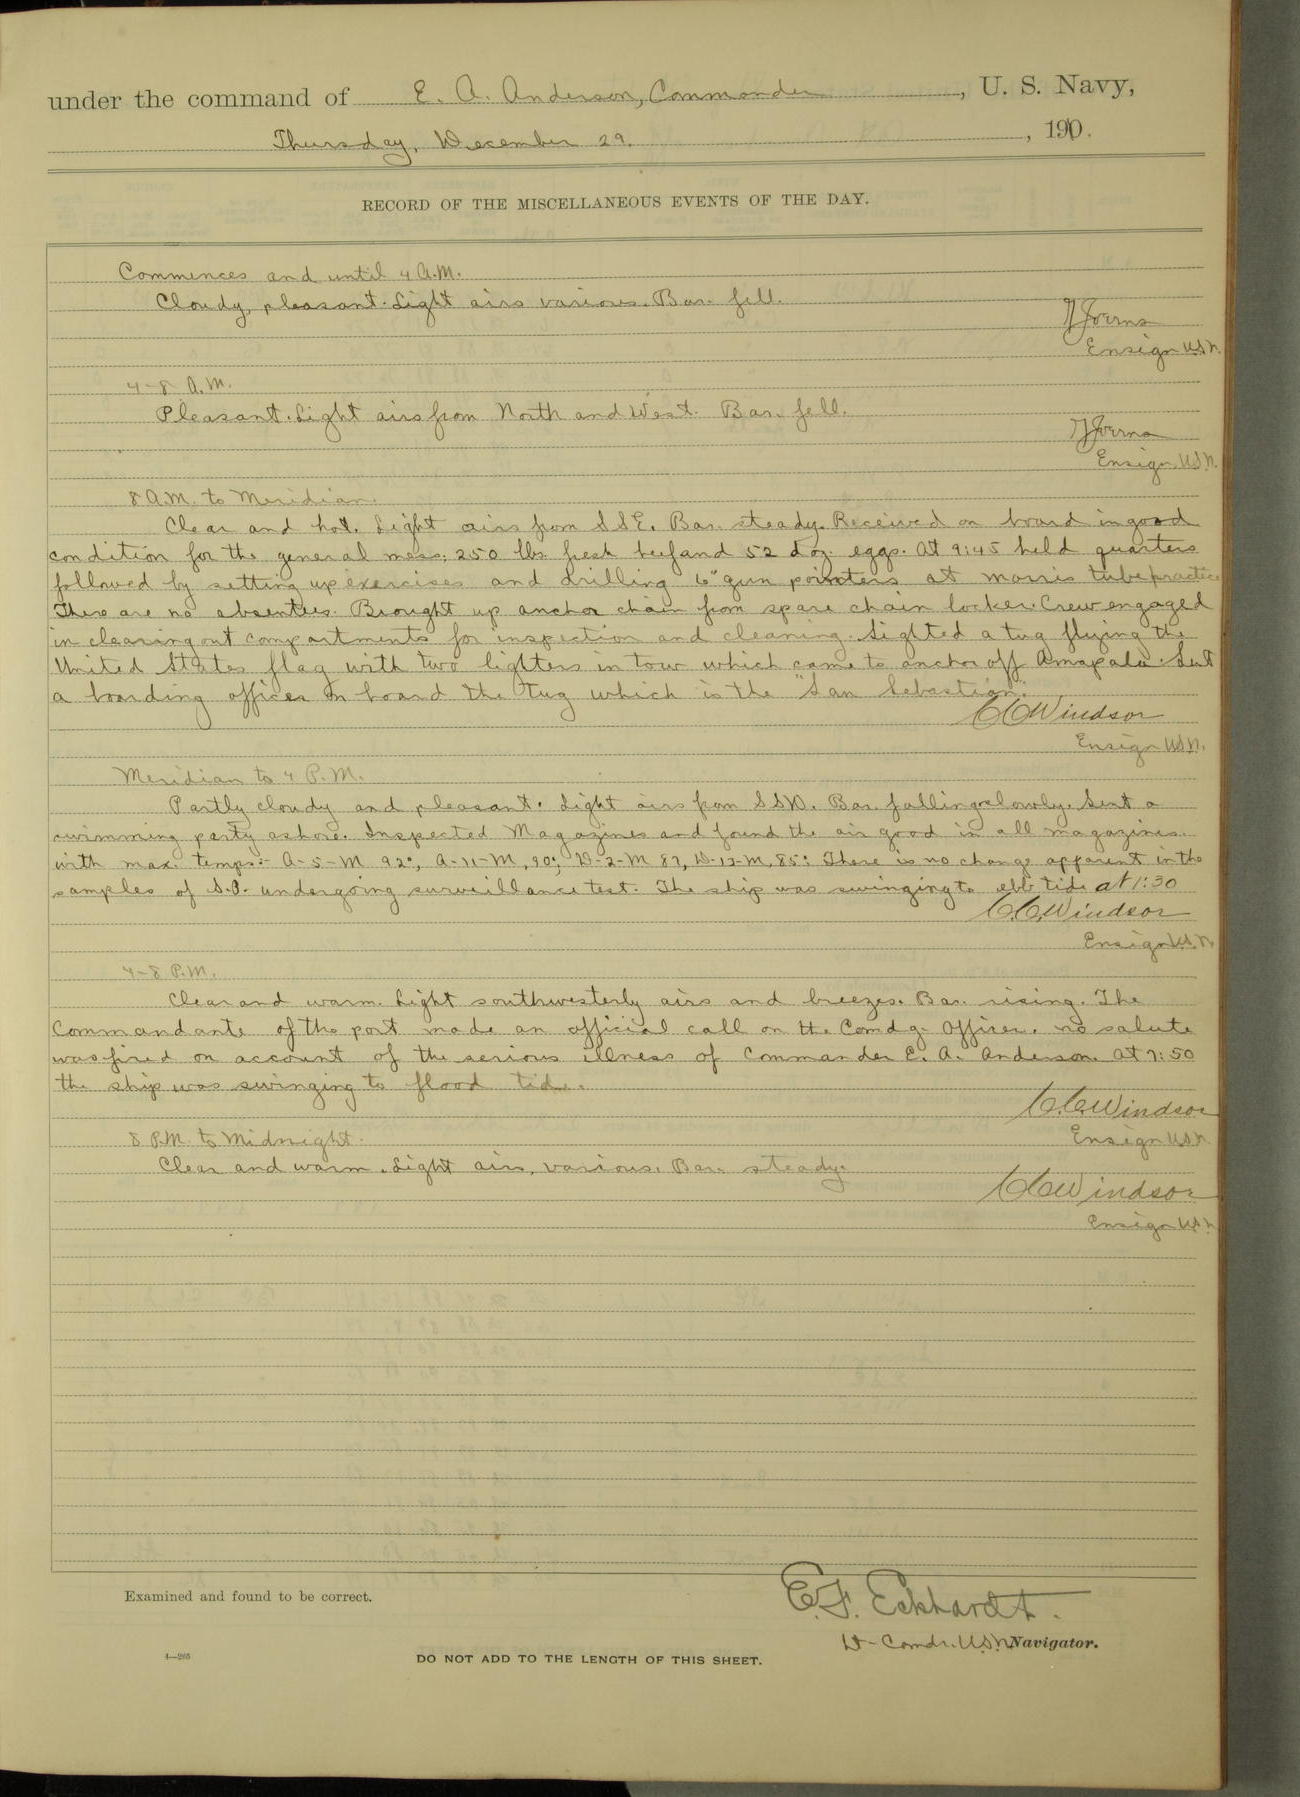 under the command of E. A. Anderson, Commander, U. S. Navy,
Thursday, December 29, 1910.
RECORD OF THE MISCELLANEOUS EVENTS OF THE DAY.
Commences and until 4 A.M.
Cloudy, pleasant. Light airs various. Bar. fell.
Ensign U.S.N.
4-8 A.M.
Pleasant. Light airs from North and West. Bar. fell.
Ensign U.S.N.
8 A.M. to Meridian.
Clear and hot. Light airs from SSE. Bar. steady. Received on board in good
condition for the general mess: 250 lbs. fresh beef and 52 doz. eggs. At 9:45 held quarters
followed by setting up exercises and drilling 6" gun pointers at morris tube practice
There are no absentees. Brought up anchor chain from spare chain locker. Crew engaged
in clearing out compartments for inspection and cleaning. Sighted a tug flying the
United States flag with two lighters in tow which came to anchor off Amapala. Sent
a boarding officer on board the tug which is the "San Sebastian."
C.C. Windsor
Ensign U.S.N.
Meridian to 4 P.M.
Partly cloudy and pleasant. Light airs from SSW. Bar. falling slowly. Sent a
swimming party ashore. Inspected Magazines and found the air good in all magazines
with max. temps:- A-5-M 92°, A-11-M, 90°, D-2-M 87, D-13-M, 85°. There is no change apparent in the
samples of S.P. undergoing surveillance test. The ship was swinging to ebb tide at 1:30
C.C. Windsor
Ensign U.S.N.
4-8 P.M.
Clear and warm. Light southwesterly airs and breezes. Bar. rising. The
Commandante of the port made an official call on the Comdg. Officer. No salute
was fired on account of the serious illness of Commander E. A. Anderson. At 7:50
the ship was swinging to flood tide.
C.C. Windsor
Ensign U.S.N.
8 P.M. to Midnight.
Clear and warm. Light airs, various. Bar. steady.
C.C. Windsor
Ensign U.S.N.
Examined and found to be correct.
E. F. Eckhardt.
Lt-Comdr. U.S.N. Navigator.
DO NOT ADD TO THE LENGTH OF THIS SHEET.